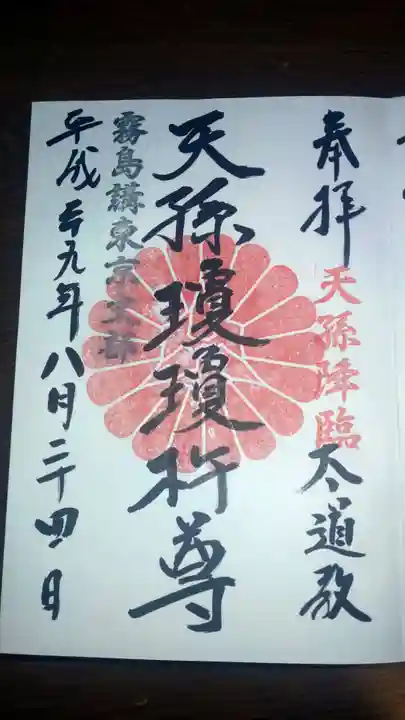 奉拝
天孫降臨
太道教
天孫瓊瓊杵尊
霧島講東京支部
平成二十九年八月二十四日